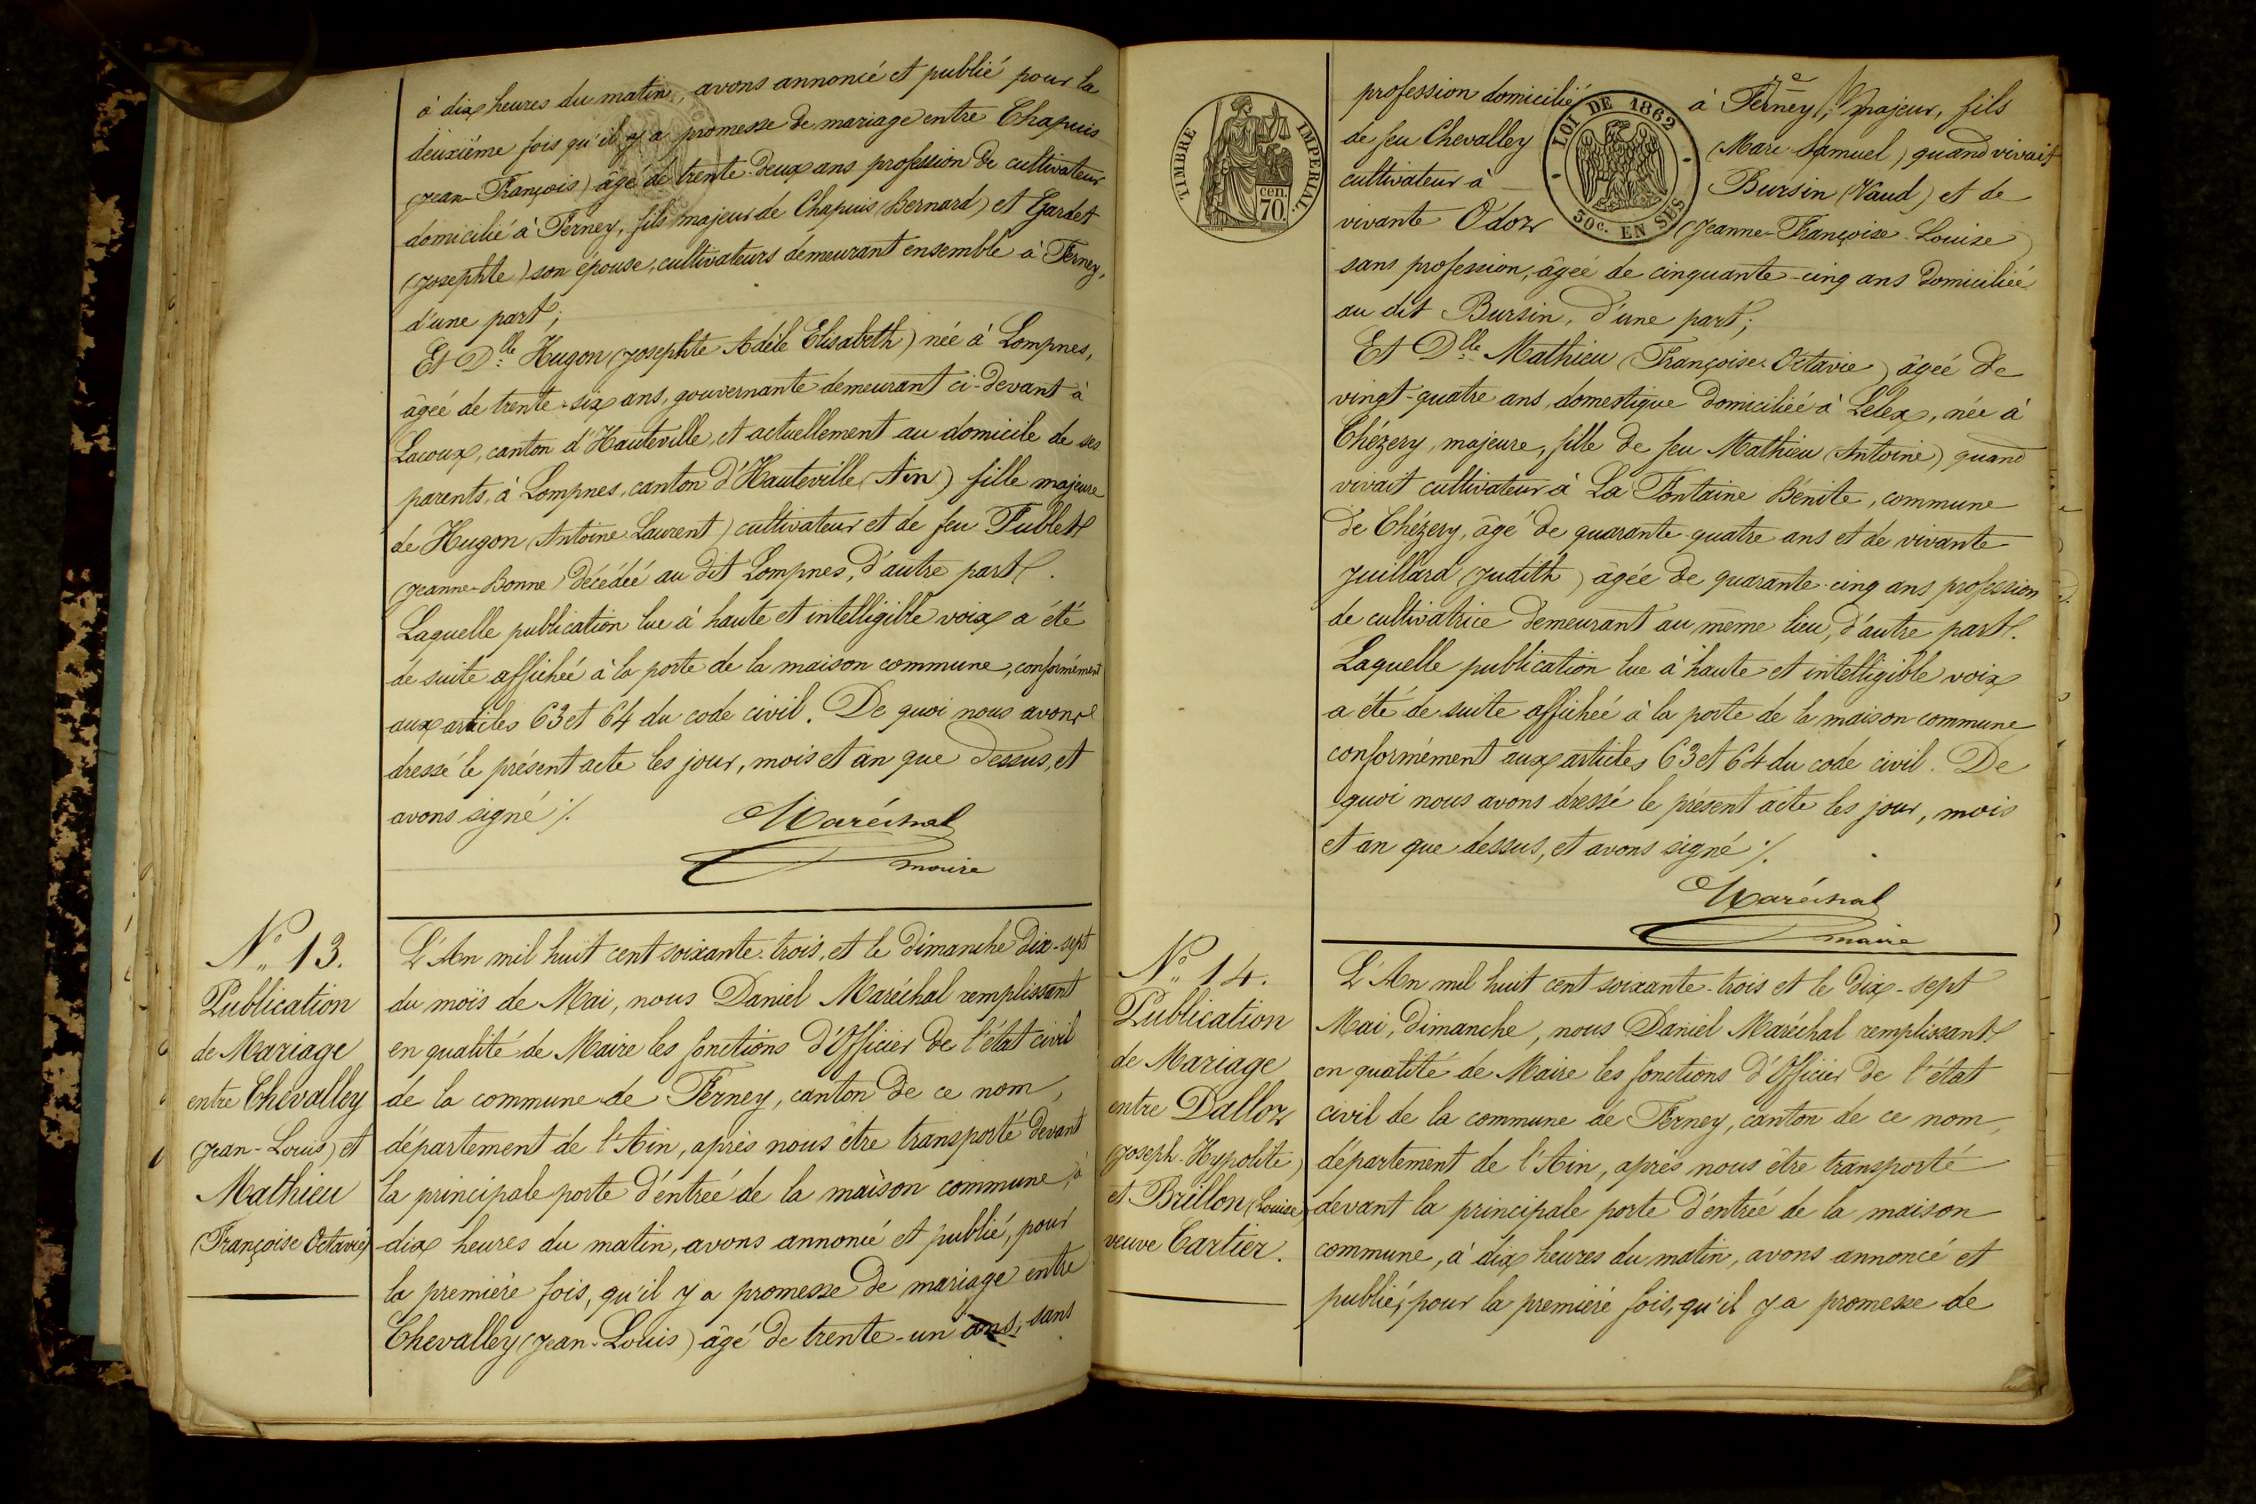 à dix heures du matin, avons annoncé et publié pour la
deuxième fois qu'il y a promesse de mariage entre Chapuis
(Jean-François) âgé de trente-deux ans profession de cultivateur
domicilié à Ferney, fils majeur de Chapuis (Bernard) et Gardet
(Josephte) son épouse, cultivateurs demeurant ensemble à Ferney,
d'une part;
Et Dlle Hugon (Josephte Adèle Elisabeth) née à Lompnes,
âgée de trente-six ans, gouvernante demeurant ci-devant à
Lacoux, canton d'Hauteville, et actuellement au domicile de ses
parents, à Lompnes, canton d'Hauteville (Ain) fille majeure
de Hugon (Antoine Laurent) cultivateur et de feu Fublet
(Jeanne-Bonne) décédée au dit Lompnes, d'autre part.
Laquelle publication lue à haute et intelligible voix a été
de suite affichée à la porte de la maison commune, conformément
aux articles 63 et 64 du code civil. De quoi nous avons
dressé le présent acte les jour, mois et an que dessus, et
avons signé ./.
Maréchal
maire
No 13.
Publication
de Mariage
entre Chevalley
(Jean-Louis) et
Mathieu
(Françoise Octavie)
L'An mil huit cent soixante-trois, et le dimanche dix-sept
du mois de Mai, nous Daniel Maréchal remplissant
en qualité de Maire les fonctions d'Officier de l'état civil
de la commune de Ferney, canton de ce nom,
département de l'Ain, après nous être transporté devant
la principale porte d'entrée de la maison commune, à
dix heures du matin, avons annoncé et publié, pour
la première fois, qu'il y a promesse de mariage entre
Chevalley (Jean-Louis) âgé de trente-un ans, sans
TIMBRE IMPERIAL.
cen.
70.
LOI DE 1862
30c. EN SUS
profession domicilié à Ferney, majeur, fils
de feu Chevalley (Marc Samuel) quand vivait
cultivateur à Bursin (Vaud) et de
vivante Odoz (Jeanne-Françoise-Louise)
sans profession, âgée de cinquante-cinq ans domiciliée
au dit Bursin, d'une part;
Et Dlle Mathieu (Françoise-Octavie) âgée de
vingt-quatre ans, domestique domiciliée à Lelex, née à
Chézery, majeure, fille de feu Mathieu (Antoine) quand
vivait cultivateur à La Fontaine Bénite, commune
de Chézery, âgé de quarante-quatre ans et de vivante
Juillard (Judith) âgée de quarante-cinq ans profession
de cultivatrice demeurant au même lieu, d'autre part.
Laquelle publication lue à haute et intelligible voix
a été de suite affichée à la porte de la maison commune
conformément aux articles 63 et 64 du code civil. De
quoi nous avons dressé le présent acte les jour, mois
et an que dessus, et avons signé ./.
Maréchal
maire
No 14.
Publication
de Mariage
entre Dalloz
(Joseph-Hypolite)
et Brillon (Louise)
veuve Cartier.
L'An mil huit cent soixante-trois et le dix-sept
Mai, dimanche, nous Daniel Maréchal remplissant
en qualité de Maire les fonctions d'Officier de l'état
civil de la commune de Ferney, canton de ce nom,
département de l'Ain, après nous être transporté
devant la principale porte d'entrée de la maison
commune, à dix heures du matin, avons annoncé et
publié, pour la première fois, qu'il y a promesse de